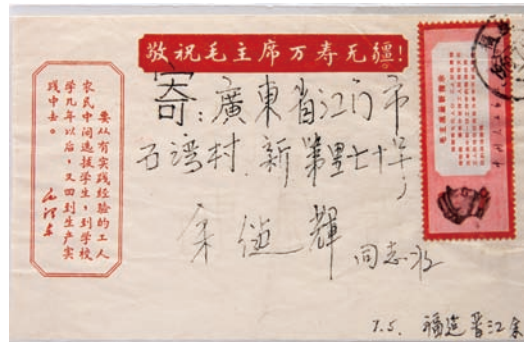 敬祝毛主席万寿无疆!
要从有实践经验的工人
农民中间选拔学生,到学校
学几年以后,又回到生产实
践中去。
毛泽东
寄:廣東省江门市
石湾村 新第里七十号
余 輝 同志收
7.5. 福建晋江余
毛主席最新指示